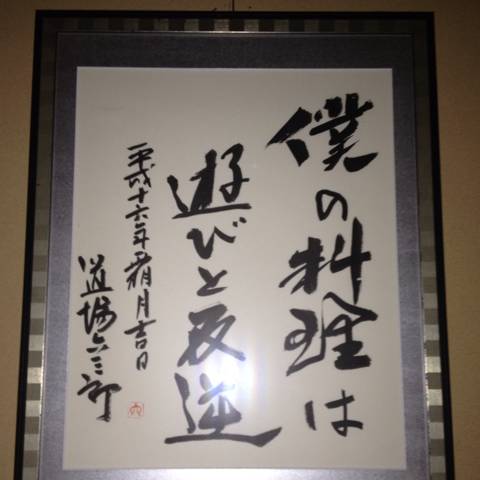 僕の料理は
遊びと反逆
平成十六年霜月吉日
道場六三郎
六